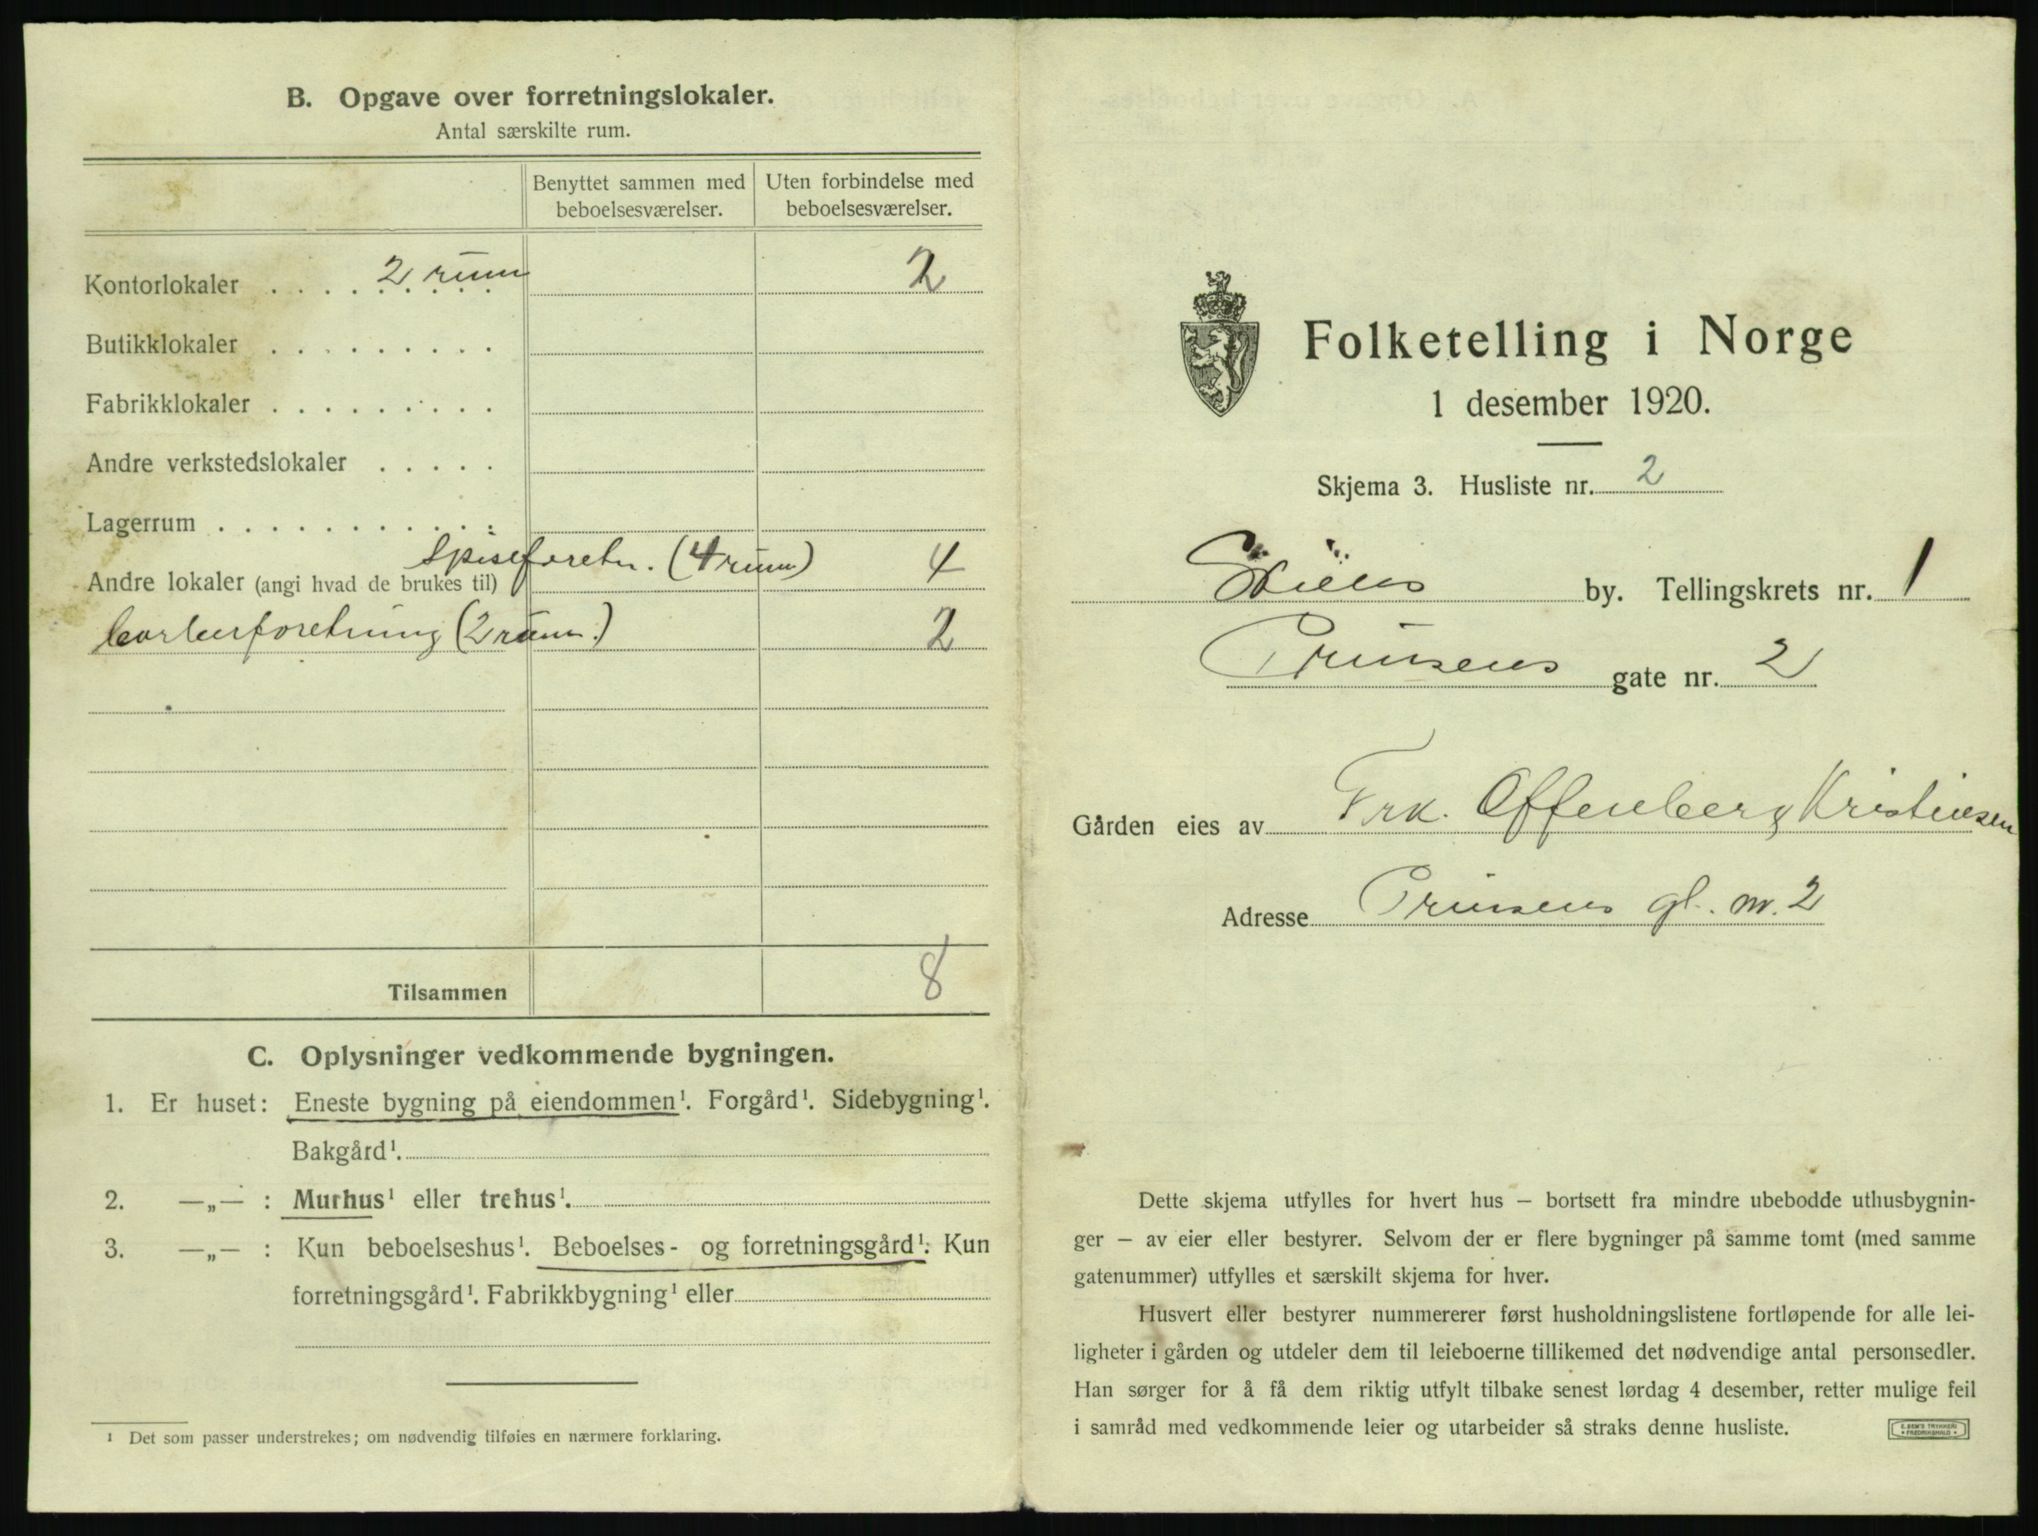 B. Opgave over forretningslokaler.
Antal særskilte rum.
Benyttet sammen med beboelsesværelser.
Uten forbindelse med beboelsesværelser.
Kontorlokaler . . . . . . . . . 2 rum 2
Butikklokaler . . . . . . . . .
Fabrikklokaler . . . . . . . . .
Andre verkstedslokaler . . . . .
Lagerrum . . . . . . . . . . . .
Andre lokaler (angi hvad de brukes til) Spiseforetn. (4 rum) 4
barberforetning (2 rum.) 2
Tilsammen 8
C. Oplysninger vedkommende bygningen.
1. Er huset: Eneste bygning på eiendommen¹. Forgård¹. Sidebygning¹.
Bakgård¹.
2. —„— : Murhus¹ eller trehus¹.
3. —„— : Kun beboelseshus¹. Beboelses- og forretningsgård¹. Kun
forretningsgård¹. Fabrikkbygning¹ eller
¹ Det som passer understrekes; om nødvendig tilføies en nærmere forklaring.
Folketelling i Norge
1 desember 1920.
Skjema 3. Husliste nr. 2
Skiens by. Tellingskrets nr. 1
Prinsens gate nr. 2
Gården eies av Frk. Offenberg Kristinsen
Adresse Prinsens gt. nr. 2
Dette skjema utfylles for hvert hus – bortsett fra mindre ubebodde uthusbygnin-
ger – av eier eller bestyrer. Selvom der er flere bygninger på samme tomt (med samme
gatenummer) utfylles et særskilt skjema for hver.
Husvert eller bestyrer nummererer først husholdningslistene fortløpende for alle lei-
ligheter i gården og utdeler dem til leieboerne tillikemed det nødvendige antal personsedler.
Han sørger for å få dem riktig utfylt tilbake senest lørdag 4 desember, retter mulige feil
i samråd med vedkommende leier og utarbeider så straks denne husliste.
E. SEM'S TRYKKERI
• FREDRIKSHALD •